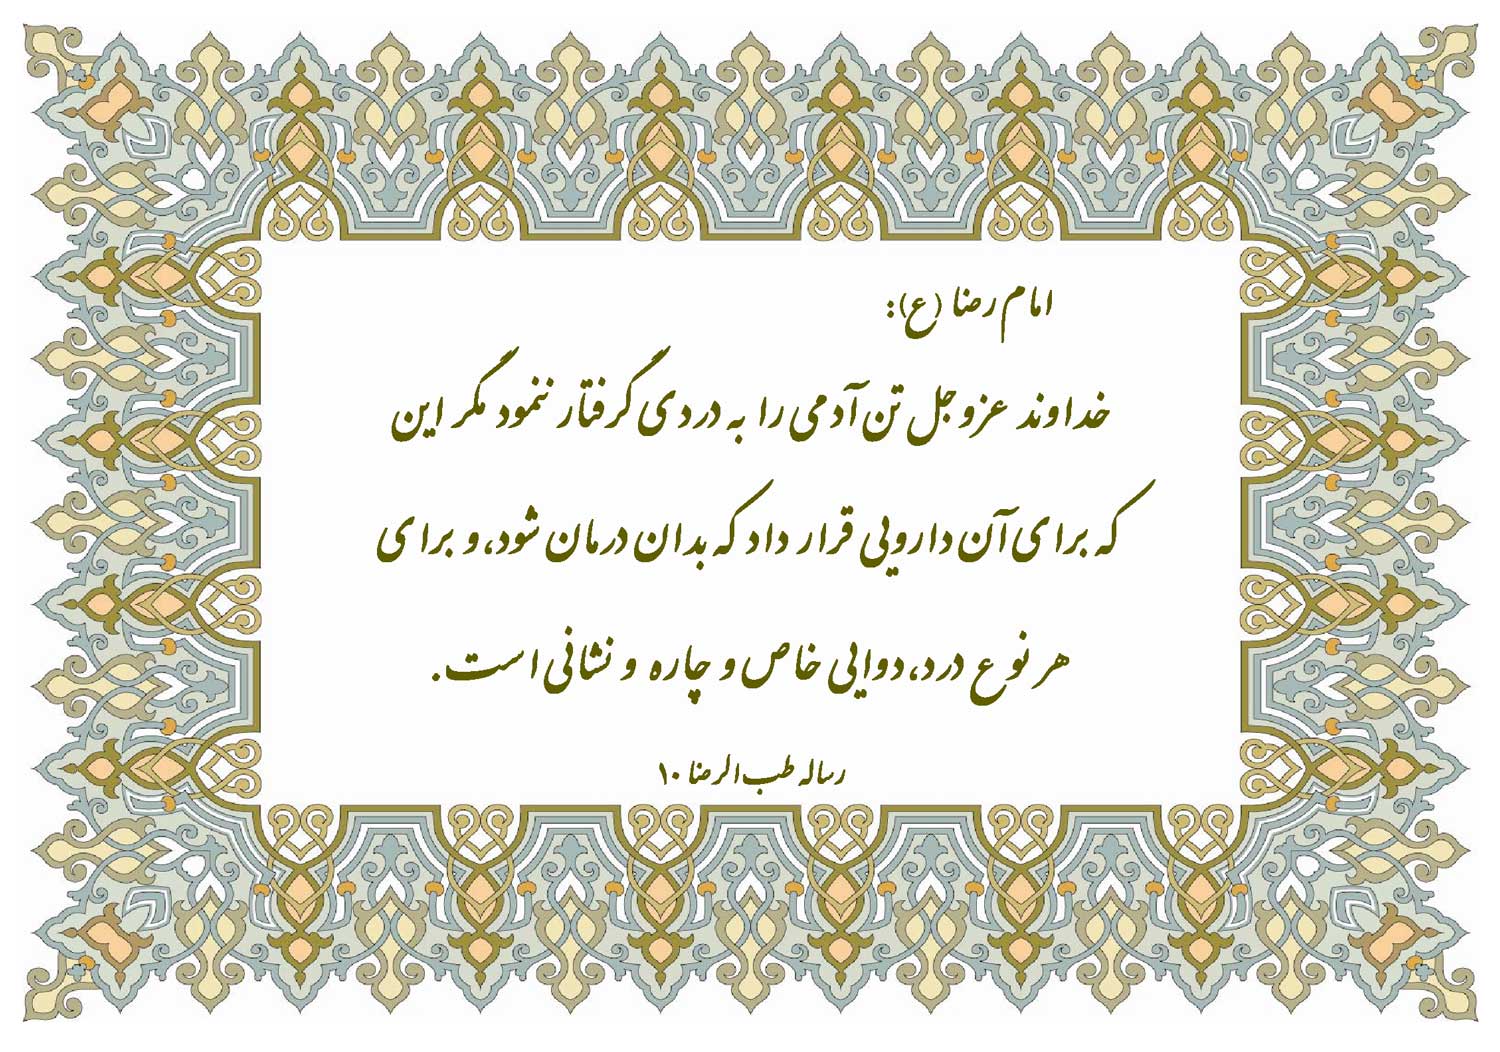 امام رضا (ع):
خداوند عزوجل تن آدمی را به دردی گرفتار ننمود مگر این
که برای آن دارویی قرار داد که بدان درمان شود، و برای
هر نوع درد، دوایی خاص و چاره و نشانی است.
رساله طب الرضا ۱۰